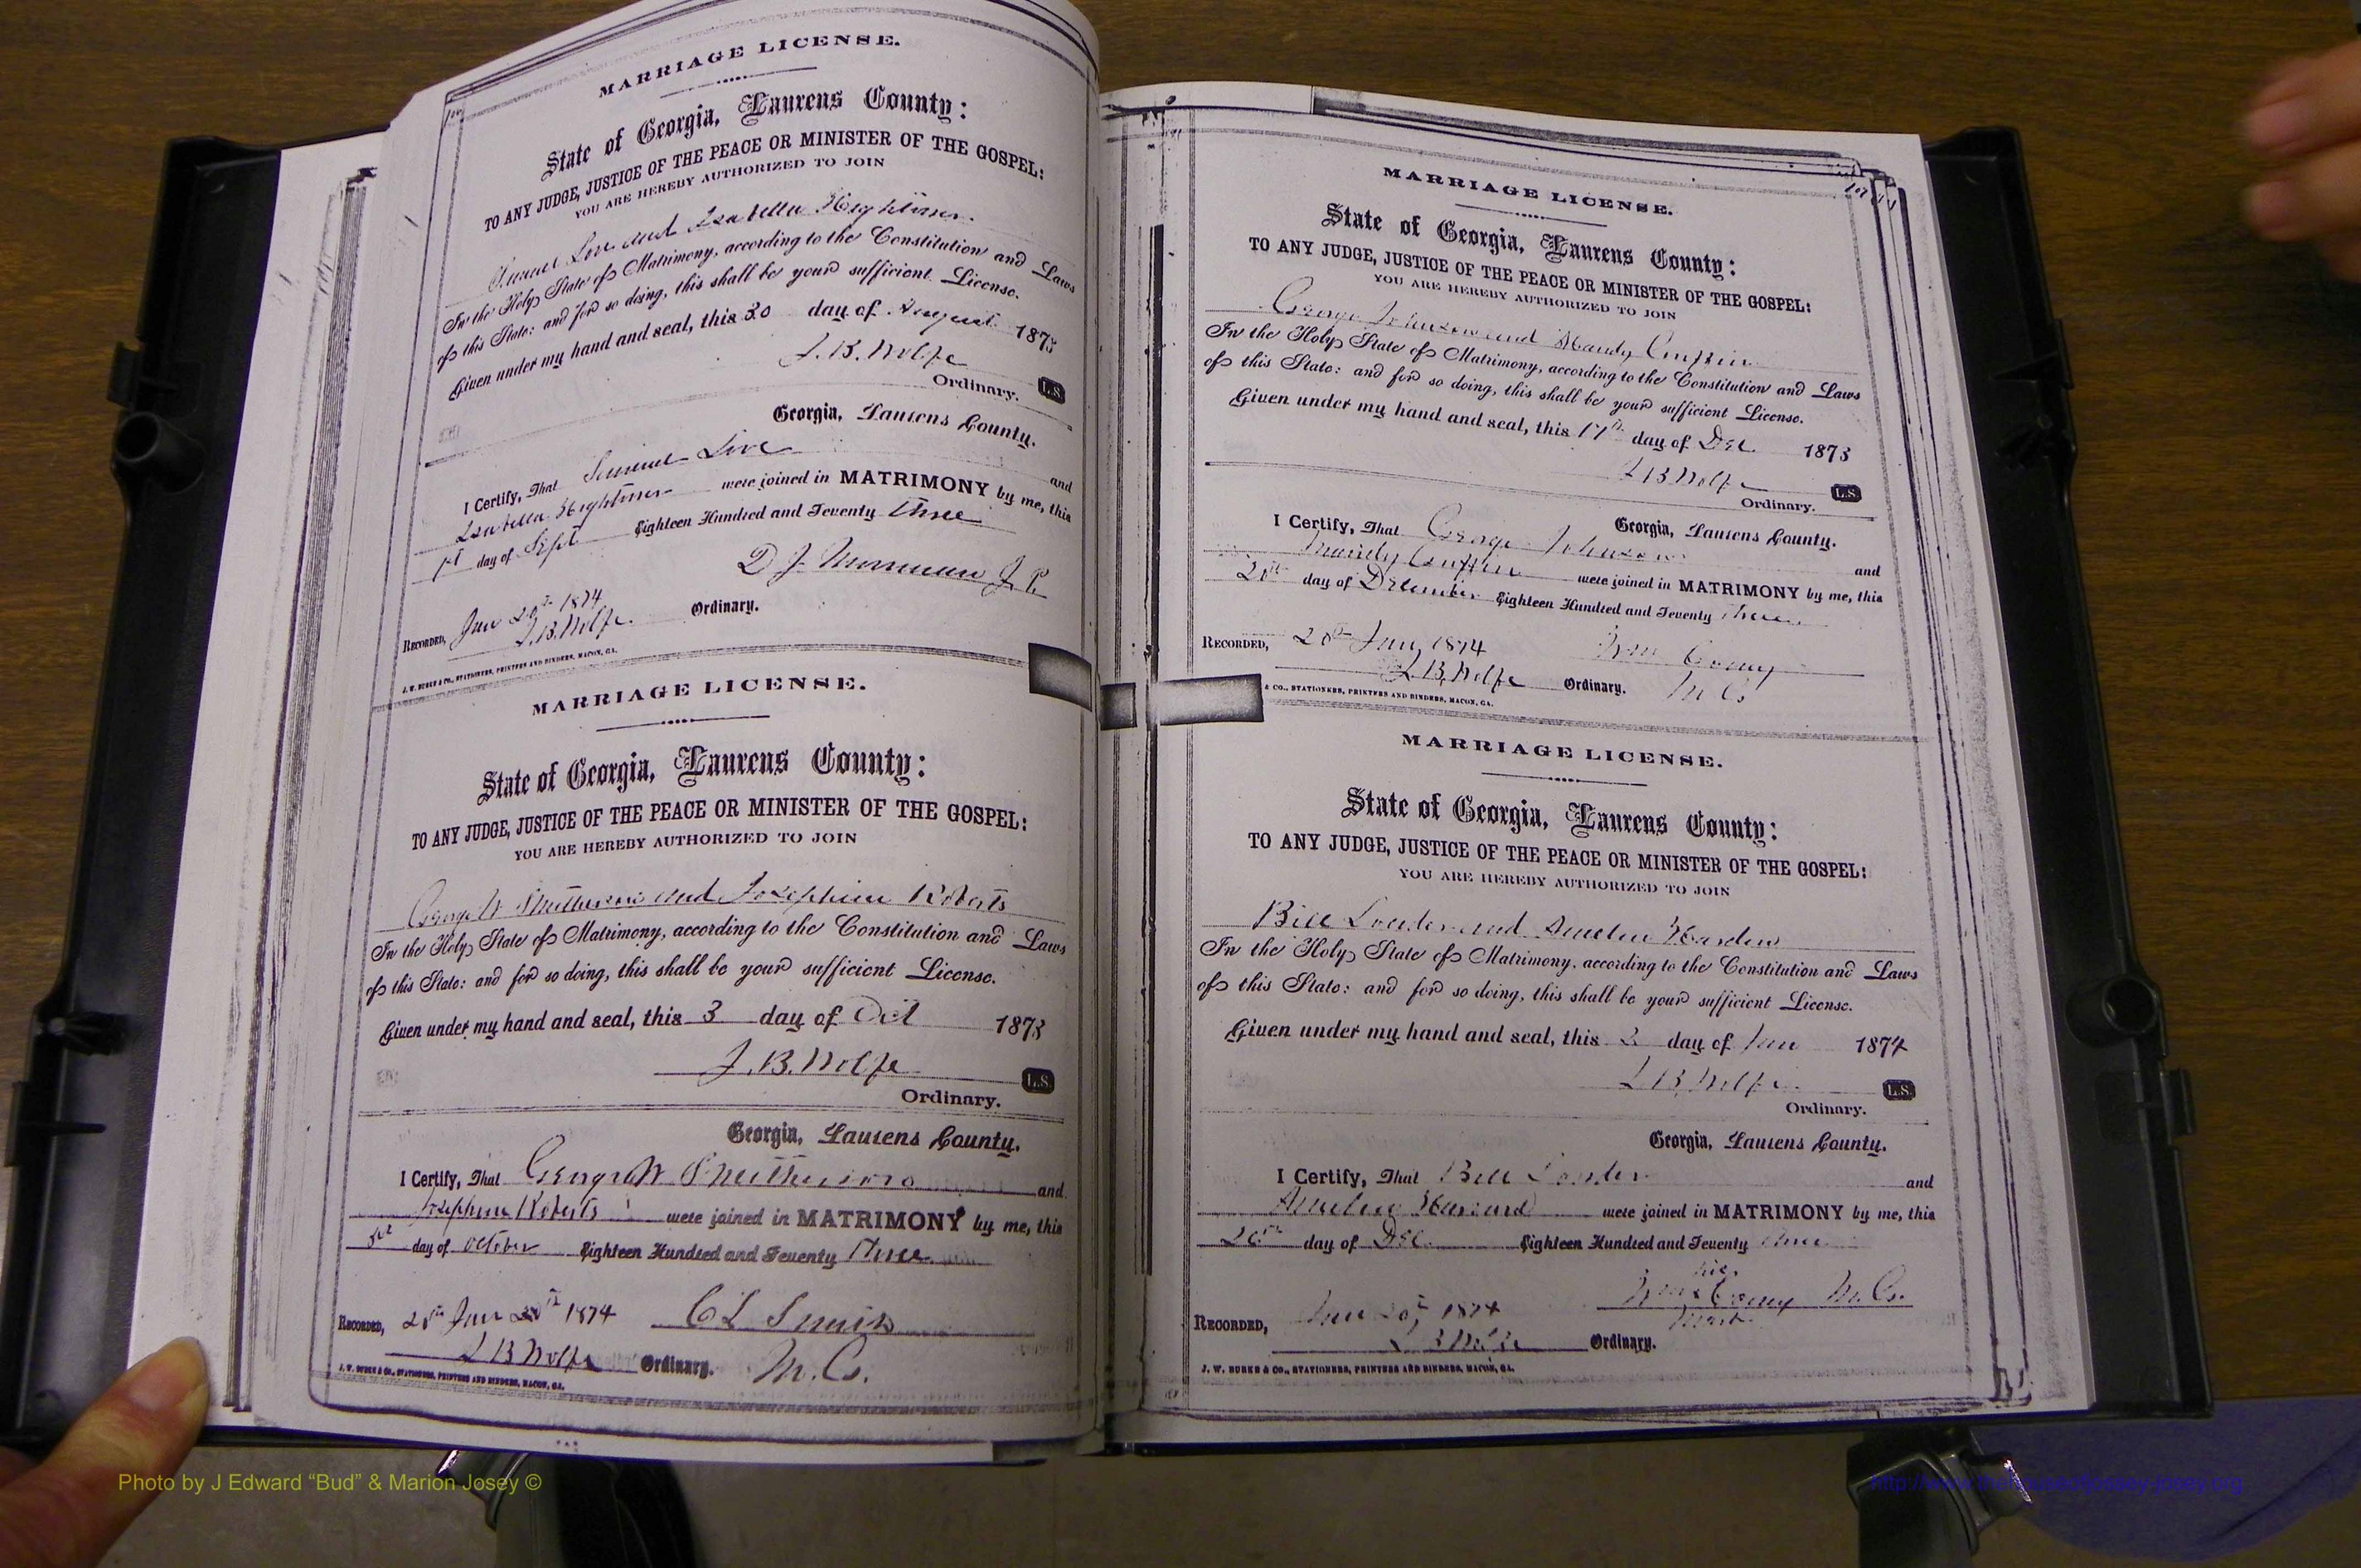 MARRIAGE LICENSE.
State of Georgia, Laurens County:
TO ANY JUDGE, JUSTICE OF THE PEACE OR MINISTER OF THE GOSPEL:
YOU ARE HEREBY AUTHORIZED TO JOIN
Love and Isabella
In the Holy State of Matrimony, according to the Constitution and Laws
of this State: and for so doing, this shall be your sufficient License.
Given under my hand and seal, this 30 day of August 1873
J.B. Wolfe
Ordinary. L.S.
Georgia, Laurens County.
I Certify, That Love and
Isabella were joined in MATRIMONY by me, this
1st day of Sept Eighteen Hundred and Seventy Three
D J J. P.
RECORDED, Jan 20th 1874
J.B. Wolfe Ordinary.
J. W. BURKE & CO., STATIONERS, PRINTERS AND BINDERS, MACON, GA.
MARRIAGE LICENSE.
State of Georgia, Laurens County:
TO ANY JUDGE, JUSTICE OF THE PEACE OR MINISTER OF THE GOSPEL:
YOU ARE HEREBY AUTHORIZED TO JOIN
George W and Josephine Roberts
In the Holy State of Matrimony, according to the Constitution and Laws
of this State: and for so doing, this shall be your sufficient License.
Given under my hand and seal, this 3 day of Oct 1873
J.B. Wolfe L.S.
Ordinary.
Georgia, Laurens County.
I Certify, That George W and
Josephine Roberts were joined in MATRIMONY by me, this
3rd day of October Eighteen Hundred and Seventy Three
RECORDED, 20th Jan 20th 1874 C L Smith
J B Wolfe Ordinary. M. G.
J. W. BURKE & CO., STATIONERS, PRINTERS AND BINDERS, MACON, GA.
MARRIAGE LICENSE.
State of Georgia, Laurens County:
TO ANY JUDGE, JUSTICE OF THE PEACE OR MINISTER OF THE GOSPEL:
YOU ARE HEREBY AUTHORIZED TO JOIN
George Johnson and Mandy
In the Holy State of Matrimony, according to the Constitution and Laws
of this State: and for so doing, this shall be your sufficient License.
Given under my hand and seal, this 17th day of Dec 1873
J B Wolfe L.S.
Ordinary.
Georgia, Laurens County.
I Certify, That George Johnson and
Mandy were joined in MATRIMONY by me, this
20th day of December Eighteen Hundred and Seventy Three
RECORDED, 20th Jany 1874 Wm
J.B. Wolfe Ordinary. M G
& CO., STATIONERS, PRINTERS AND BINDERS, MACON, GA.
MARRIAGE LICENSE.
State of Georgia, Laurens County:
TO ANY JUDGE, JUSTICE OF THE PEACE OR MINISTER OF THE GOSPEL:
YOU ARE HEREBY AUTHORIZED TO JOIN
Bill and
In the Holy State of Matrimony, according to the Constitution and Laws
of this State: and for so doing, this shall be your sufficient License.
Given under my hand and seal, this 2 day of Jan 1874
J B Wolfe L.S.
Ordinary.
Georgia, Laurens County.
I Certify, That Bill and
were joined in MATRIMONY by me, this
day of Dec. Eighteen Hundred and Seventy three
his
M. G.
mark
RECORDED, Jan 20th 1874
J B Wolfe Ordinary.
J. W. BURKE & CO., STATIONERS, PRINTERS AND BINDERS, MACON, GA.
Photo by J Edward “Bud” & Marion Josey ©